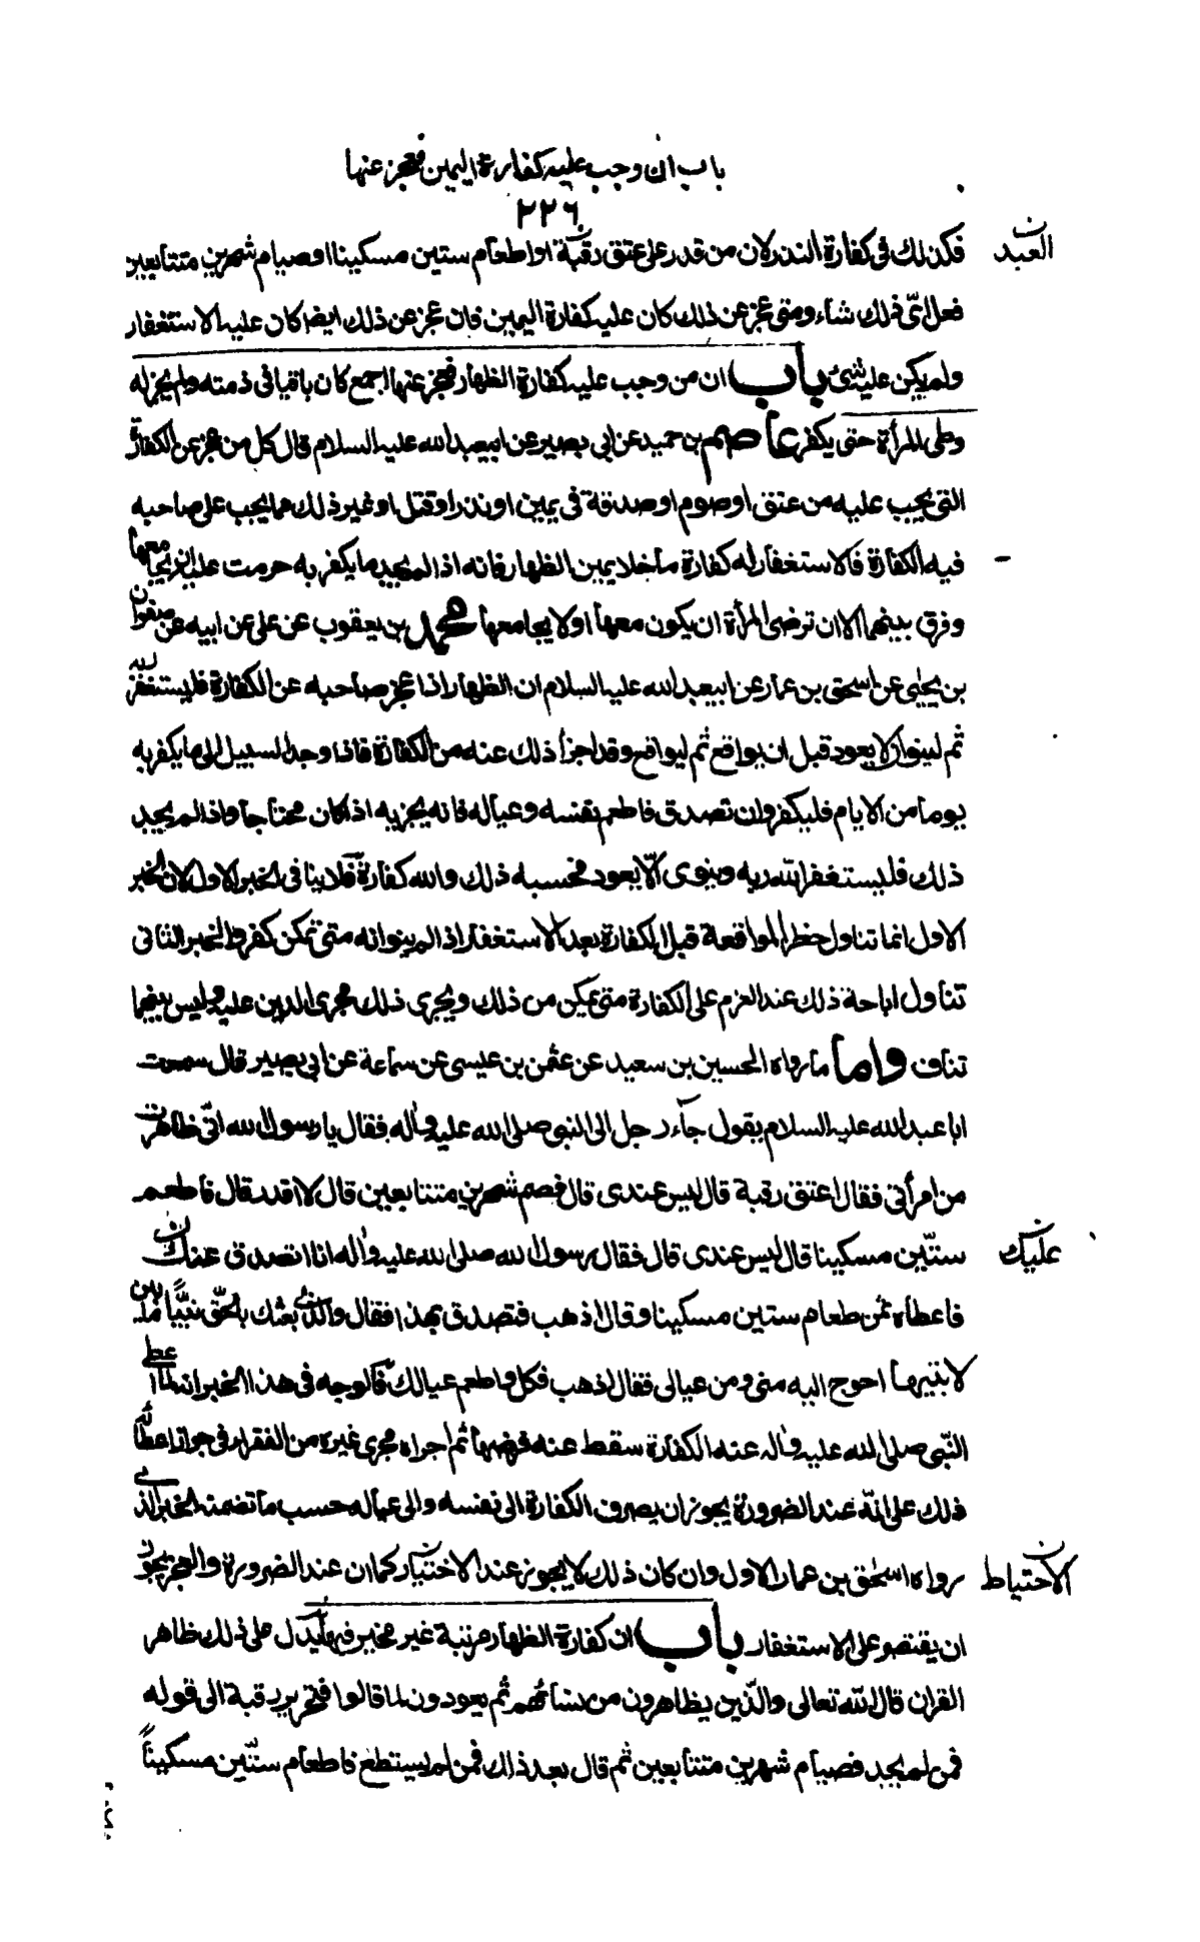 باب ان وجب عليه كفارة اليمين فعجز عنها
٢٢٦
العبد ن
فكذلك فى كفارة النذر لان من قدر على عتق رقبة او اطعام ستين مسكينا او صيام شهرين متتابعين
فعل اىّ ذلك شاء ومتى عجز عن ذلك كان عليه كفارة اليمين فان عجز عن ذلك ايضا كان عليه الاستغفار
ولم يكن عليه شئ باب ان من وجب عليه كفارة الظهار فعجز عنها اجمع كان باقيا فى ذمته ولم يجز له
وطى المرأة حتى يكفر عاصم بن حميد عن ابى بصير عن ابيعبد الله عليه السلام قال كل من عجز عن الكفارة
التى يجب عليه من عتق او صوم او صدقة فى يمين او نذر او قتل او غير ذلك مما يجب على صاحبه
فيه الكفارة فالاستغفار له كفارة ما خلا يمين الظهار فانه اذا لم يجد ما يكفر به حرمت عليه ان يجامعها
وفرق بينهما الا ان ترضى المرأة ان يكون معها اولا يجامعها محمد بن يعقوب عن على عن ابيه عن صفوان
بن يحيى عن اسحق بن عمار عن ابيعبد الله عليه السلام ان الظهار اذا عجز صاحبه عن الكفارة فليستغفر ربه
ثم لينو ان لا يعود قبل ان يواقع ثم ليواقع وقد اجزأ ذلك عنه من الكفارة فاذا وجد السبيل الى ما يكفر به
يوما من الايام فليكفر وان تصدق فاطعم نفسه وعياله فانه يجزيه اذا كان محتاجا واذا لم يجد
ذلك فليستغفر الله ربه وينوى الّا يعود فحسبه ذلك والله كفارة فلا ينافى الخبر الاول لان الخبر
الاول انما تناول حظر المواقعة قبل الكفارة بعد الاستغفار اذا لم ينو انه متى تمكن كفر والخبر الثانى
تناول اباحة ذلك عند العزم على الكفارة متى يمكن من ذلك ويجرى ذلك مجرى الدين عليه وليس بينهما
تناف واما ما رواه الحسين بن سعيد عن عثمن بن عيسى عن سماعة عن ابى بصير قال سمعت
ابا عبد الله عليه السلام يقول جآء رجل الى النبى صلى الله عليه واٰله فقال يا رسول الله انّى ظاهرت
من امرأتى فقال اعتق رقبة قال ليس عندى قال فصم شهرين متتابعين قال لا اقدر قال فاطعم
عليك ن
ستّين مسكينا قال ليس عندى قال فقال رسول الله صلى الله عليه واٰله انا اتصدق عنك ن
فاعطاه ثمن طعام ستين مسكينا وقال اذهب فتصدق بهذا فقال والذى بعثك بالحقّ نبيّا ما بين
لابتيها احوج اليه منى ومن عيالى فقال اذهب فكل واطعم عيالك فالوجه فى هذا الخبر انه لما اعطى
النّبى صلى الله عليه واٰله عنه الكفارة سقط عنه فرضها ثم اجراه مجرى غيره من الفقراء فى جواز اعطائه
ذلك على انّه عند الضرورة يجوز ان يصرف الكفارة الى نفسه والى عياله حسب ما تضمنه الخبر الذى
الاحتياط ن
رواه اسحٰق بن عمار الاول وان كان ذلك لا يجوز عند الاختيار ن كما ان عند الضرورة والعجز يجوز
ان يقتصر على الاستغفار باب ان كفارة الظهار مرتبة غير مخير فيها يدل على ذلك ظاهر
القران قال الله تعالى والّذين يظاهرون من نسائهم ثم يعودون لما قالوا فتحرير رقبة الى قوله
فمن لم يجد فصيام شهرين متتابعين ثم قال بعد ذلك فمن لم يستطع فاطعام ستّين مسكيناً